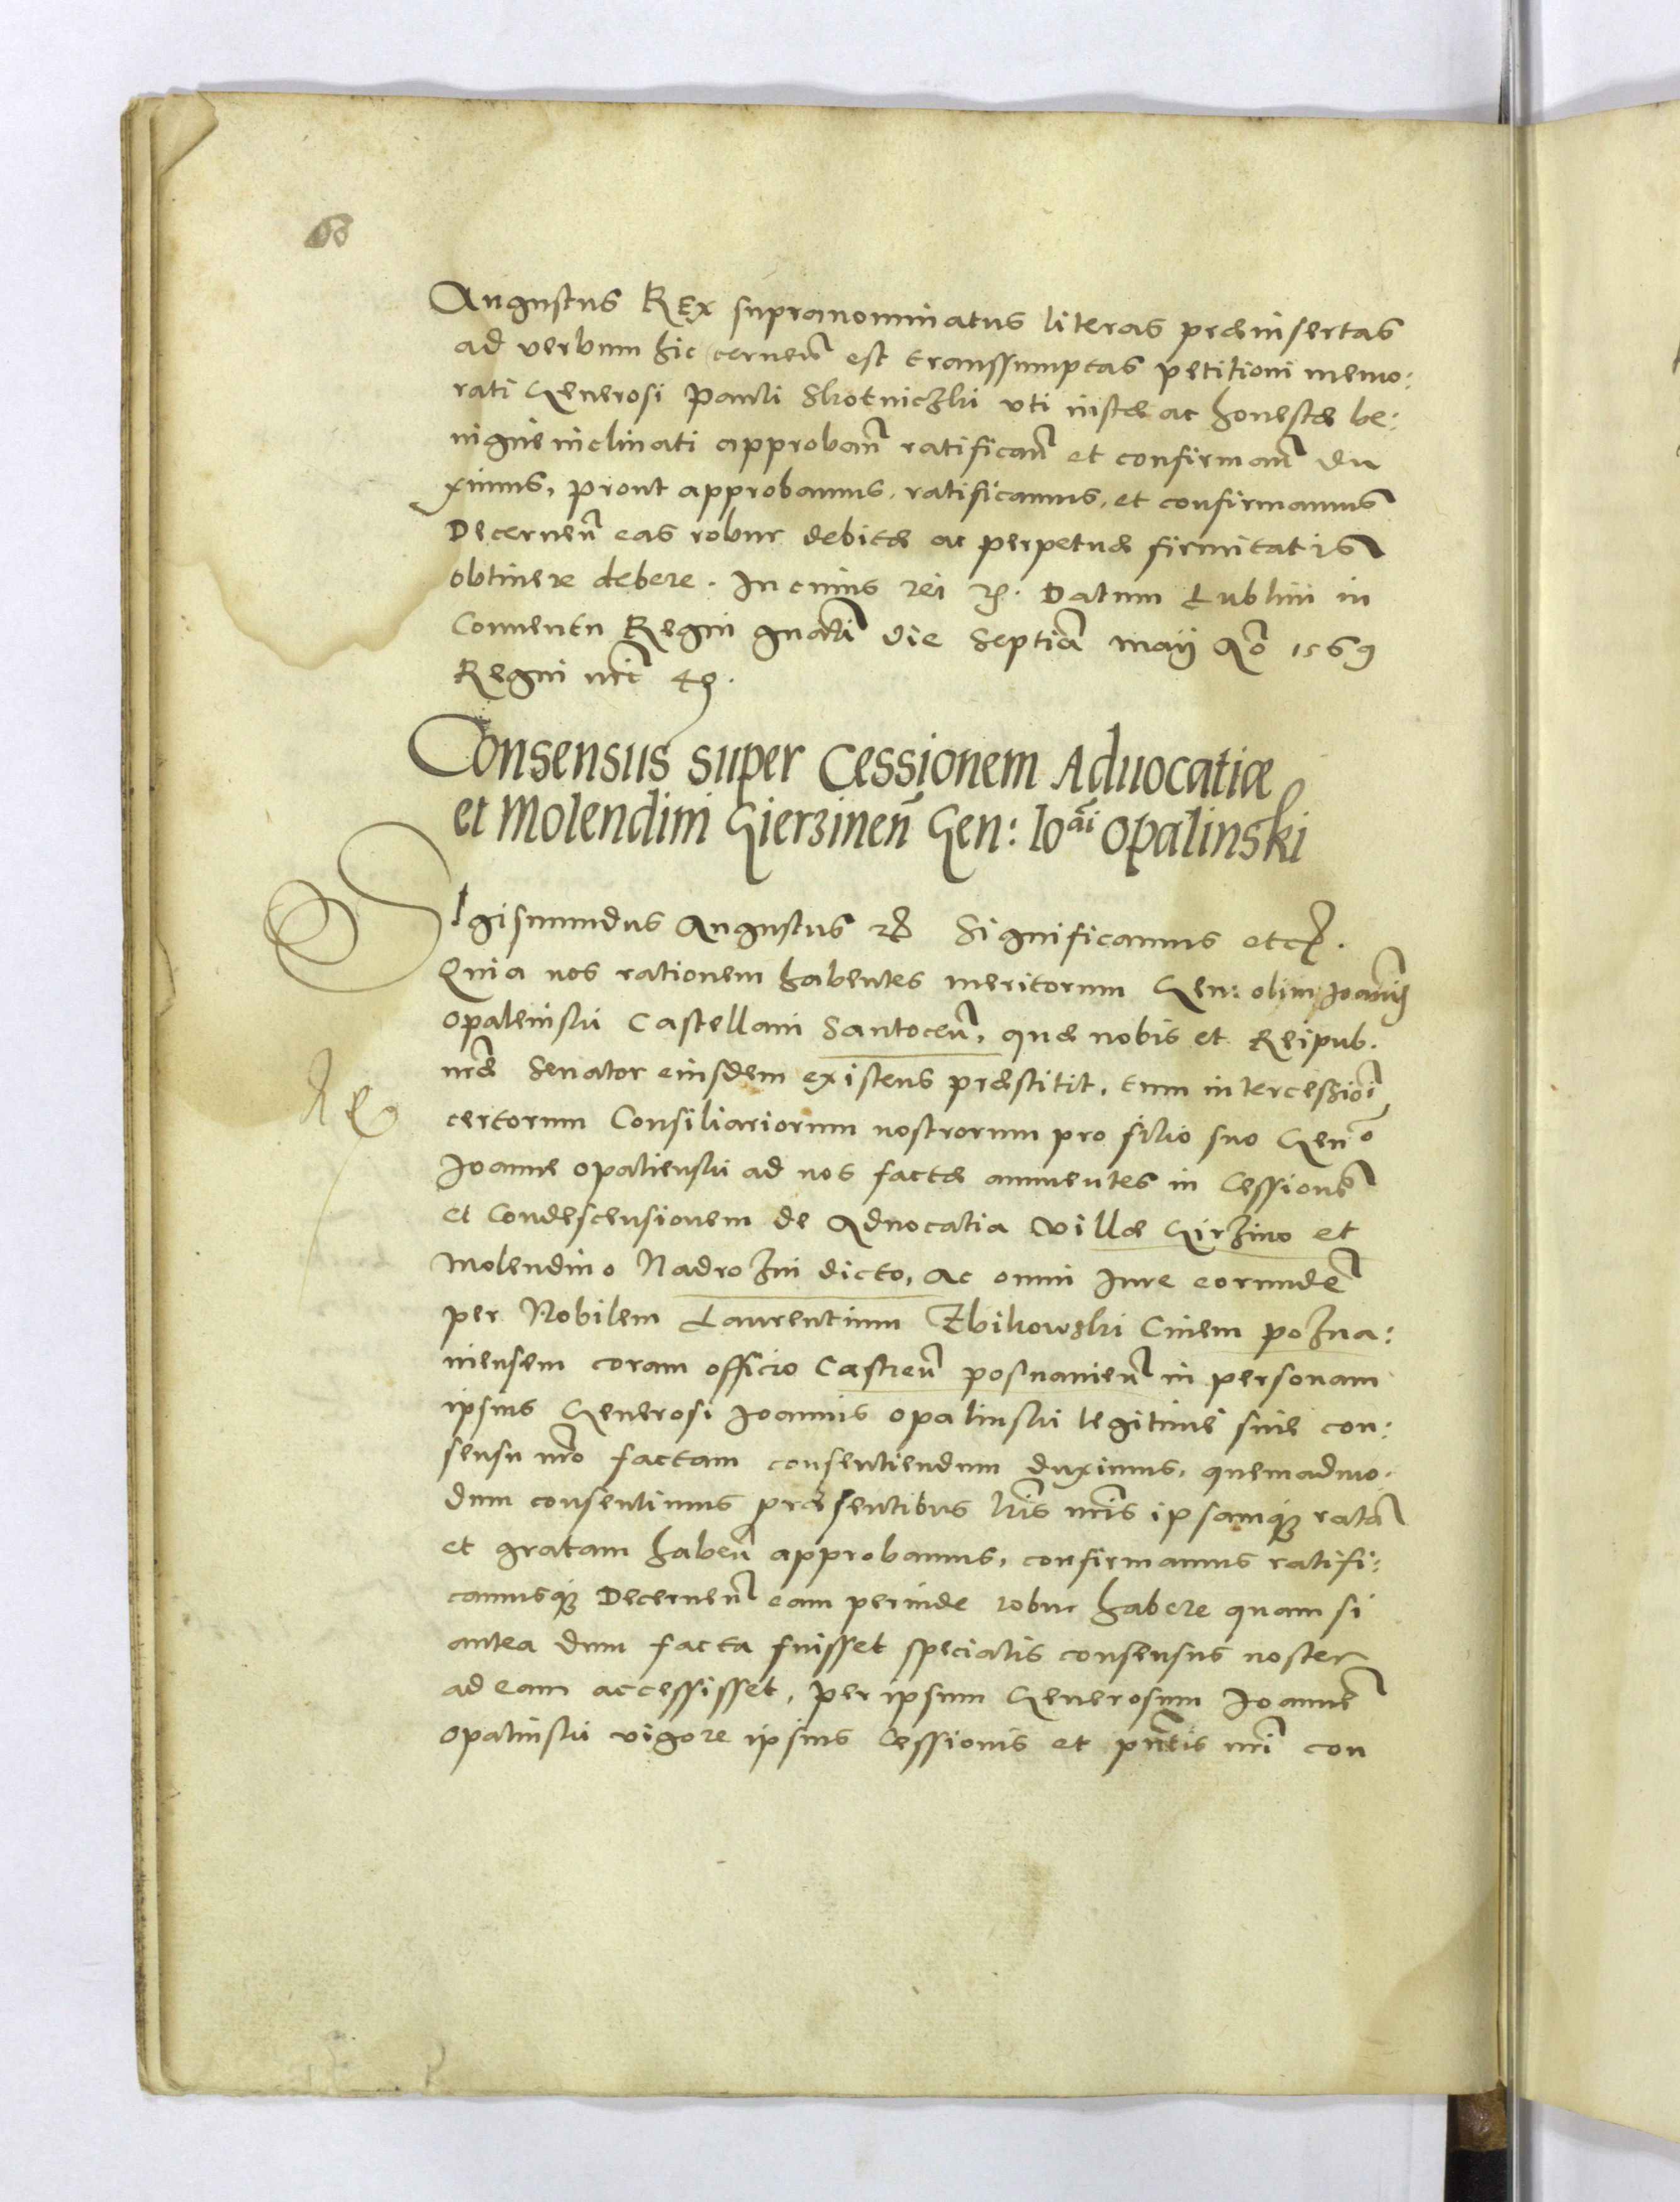 68
Augustus REx supranominatus literas præinsertas
ad verbum hic cerneñ est transsumptas petitioni memo:
rati Generosi Pauli Skotniczki vti iustæ ac honestæ be:
nigne inclinati approbañ ratificañ et confirmañ du
ximus, prout approbamus, ratificamus, et confirmamus
Decerneñ eas robur debitæ ac perpetuæ firmitatis
obtinere debere. In cuius rei Datum Lublini in
Conuentu Regni gnali die Septiã maÿ Ao 1569
Regni nri 40.
Consensus super Cessionem Aduocatiæ
et Molendini Gierzineñ Gen: Ioãi Opalinski
SIgismundus Augustus Significamus etc.
Quia nos rationem habentes meritorum Gen: olim Joannis
Opaleinski Castellani Santoceñ, quæ nobis et Reipub.
nræ Senator eiusdem existens præstitit, tum intercessioi
certorum Consiliariorum nostrorum pro filio suo Geno
Joanne Opalienski ad nos factæ annuentes in Cessionẽ
et Condescensionem de Aduocatia villæ Girzino et
Molendino Nadrozni dicto, ac omni Jure eorundẽ
per Nobilem Laurentium Zbikowski Ciuem pozna:
niensem coram officio Castreñ posnanieñ in personam
ipsius Generosi Joannis Opalinski legitime sine con:
sensu nro factam consentiendum duximus, quemadmo.
dum consentimus præsentibus lris nris ipsamq; ratã
et gratam habeñ approbamus, confirmamus ratifi:
camusq; Decerneñ eam perinde robur habere quam si
antea dum facta fuisset specialis consensus noster
ad eam accessisset, per ipsum Generosum Joannẽ
Opalinski vigore ipsius Cessionis et pntis nri con